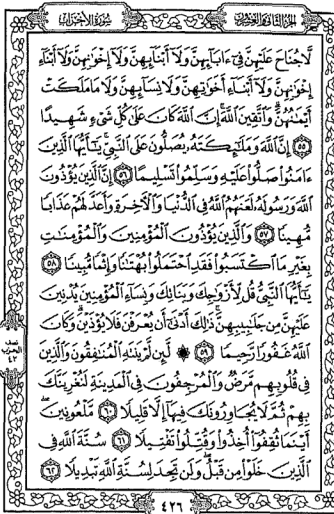 الجزء الثاني والعشرون
سورة الأحزاب
لَّا جُنَاحَ عَلَيْهِنَّ فِيٓ ءَابَآئِهِنَّ وَلَآ أَبْنَآئِهِنَّ وَلَآ إِخْوَٰنِهِنَّ وَلَآ أَبْنَآءِ
إِخْوَٰنِهِنَّ وَلَآ أَبْنَآءِ أَخَوَٰتِهِنَّ وَلَا نِسَآئِهِنَّ وَلَا مَا مَلَكَتْ
أَيْمَٰنُهُنَّ ۗ وَٱتَّقِينَ ٱللَّهَ ۚ إِنَّ ٱللَّهَ كَانَ عَلَىٰ كُلِّ شَىْءٍ شَهِيدًا
٥٥ إِنَّ ٱللَّهَ وَمَلَٰٓئِكَتَهُۥ يُصَلُّونَ عَلَى ٱلنَّبِىِّ ۚ يَٰٓأَيُّهَا ٱلَّذِينَ
ءَامَنُوا۟ صَلُّوا۟ عَلَيْهِ وَسَلِّمُوا۟ تَسْلِيمًا ٥٦ إِنَّ ٱلَّذِينَ يُؤْذُونَ
ٱللَّهَ وَرَسُولَهُۥ لَعَنَهُمُ ٱللَّهُ فِى ٱلدُّنْيَا وَٱلْءَاخِرَةِ وَأَعَدَّ لَهُمْ عَذَابًا
مُّهِينًا ٥٧ وَٱلَّذِينَ يُؤْذُونَ ٱلْمُؤْمِنِينَ وَٱلْمُؤْمِنَٰتِ
بِغَيْرِ مَا ٱكْتَسَبُوا۟ فَقَدِ ٱحْتَمَلُوا۟ بُهْتَٰنًا وَإِثْمًا مُّبِينًا ٥٨
يَٰٓأَيُّهَا ٱلنَّبِىُّ قُل لِّأَزْوَٰجِكَ وَبَنَاتِكَ وَنِسَآءِ ٱلْمُؤْمِنِينَ يُدْنِينَ
عَلَيْهِنَّ مِن جَلَٰبِيبِهِنَّ ۚ ذَٰلِكَ أَدْنَىٰٓ أَن يُعْرَفْنَ فَلَا يُؤْذَيْنَ ۗ وَكَانَ
ٱللَّهُ غَفُورًا رَّحِيمًا ٥٩ ۞ لَّئِن لَّمْ يَنتَهِ ٱلْمُنَٰفِقُونَ وَٱلَّذِينَ
فِى قُلُوبِهِم مَّرَضٌ وَٱلْمُرْجِفُونَ فِى ٱلْمَدِينَةِ لَنُغْرِيَنَّكَ
بِهِمْ ثُمَّ لَا يُجَاوِرُونَكَ فِيهَآ إِلَّا قَلِيلًا ٦٠ مَّلْعُونِينَ ۖ
أَيْنَمَا ثُقِفُوٓا۟ أُخِذُوا۟ وَقُتِّلُوا۟ تَقْتِيلًا ٦١ سُنَّةَ ٱللَّهِ فِى
ٱلَّذِينَ خَلَوْا۟ مِن قَبْلُ ۖ وَلَن تَجِدَ لِسُنَّةِ ٱللَّهِ تَبْدِيلًا ٦٢
٤٢٦